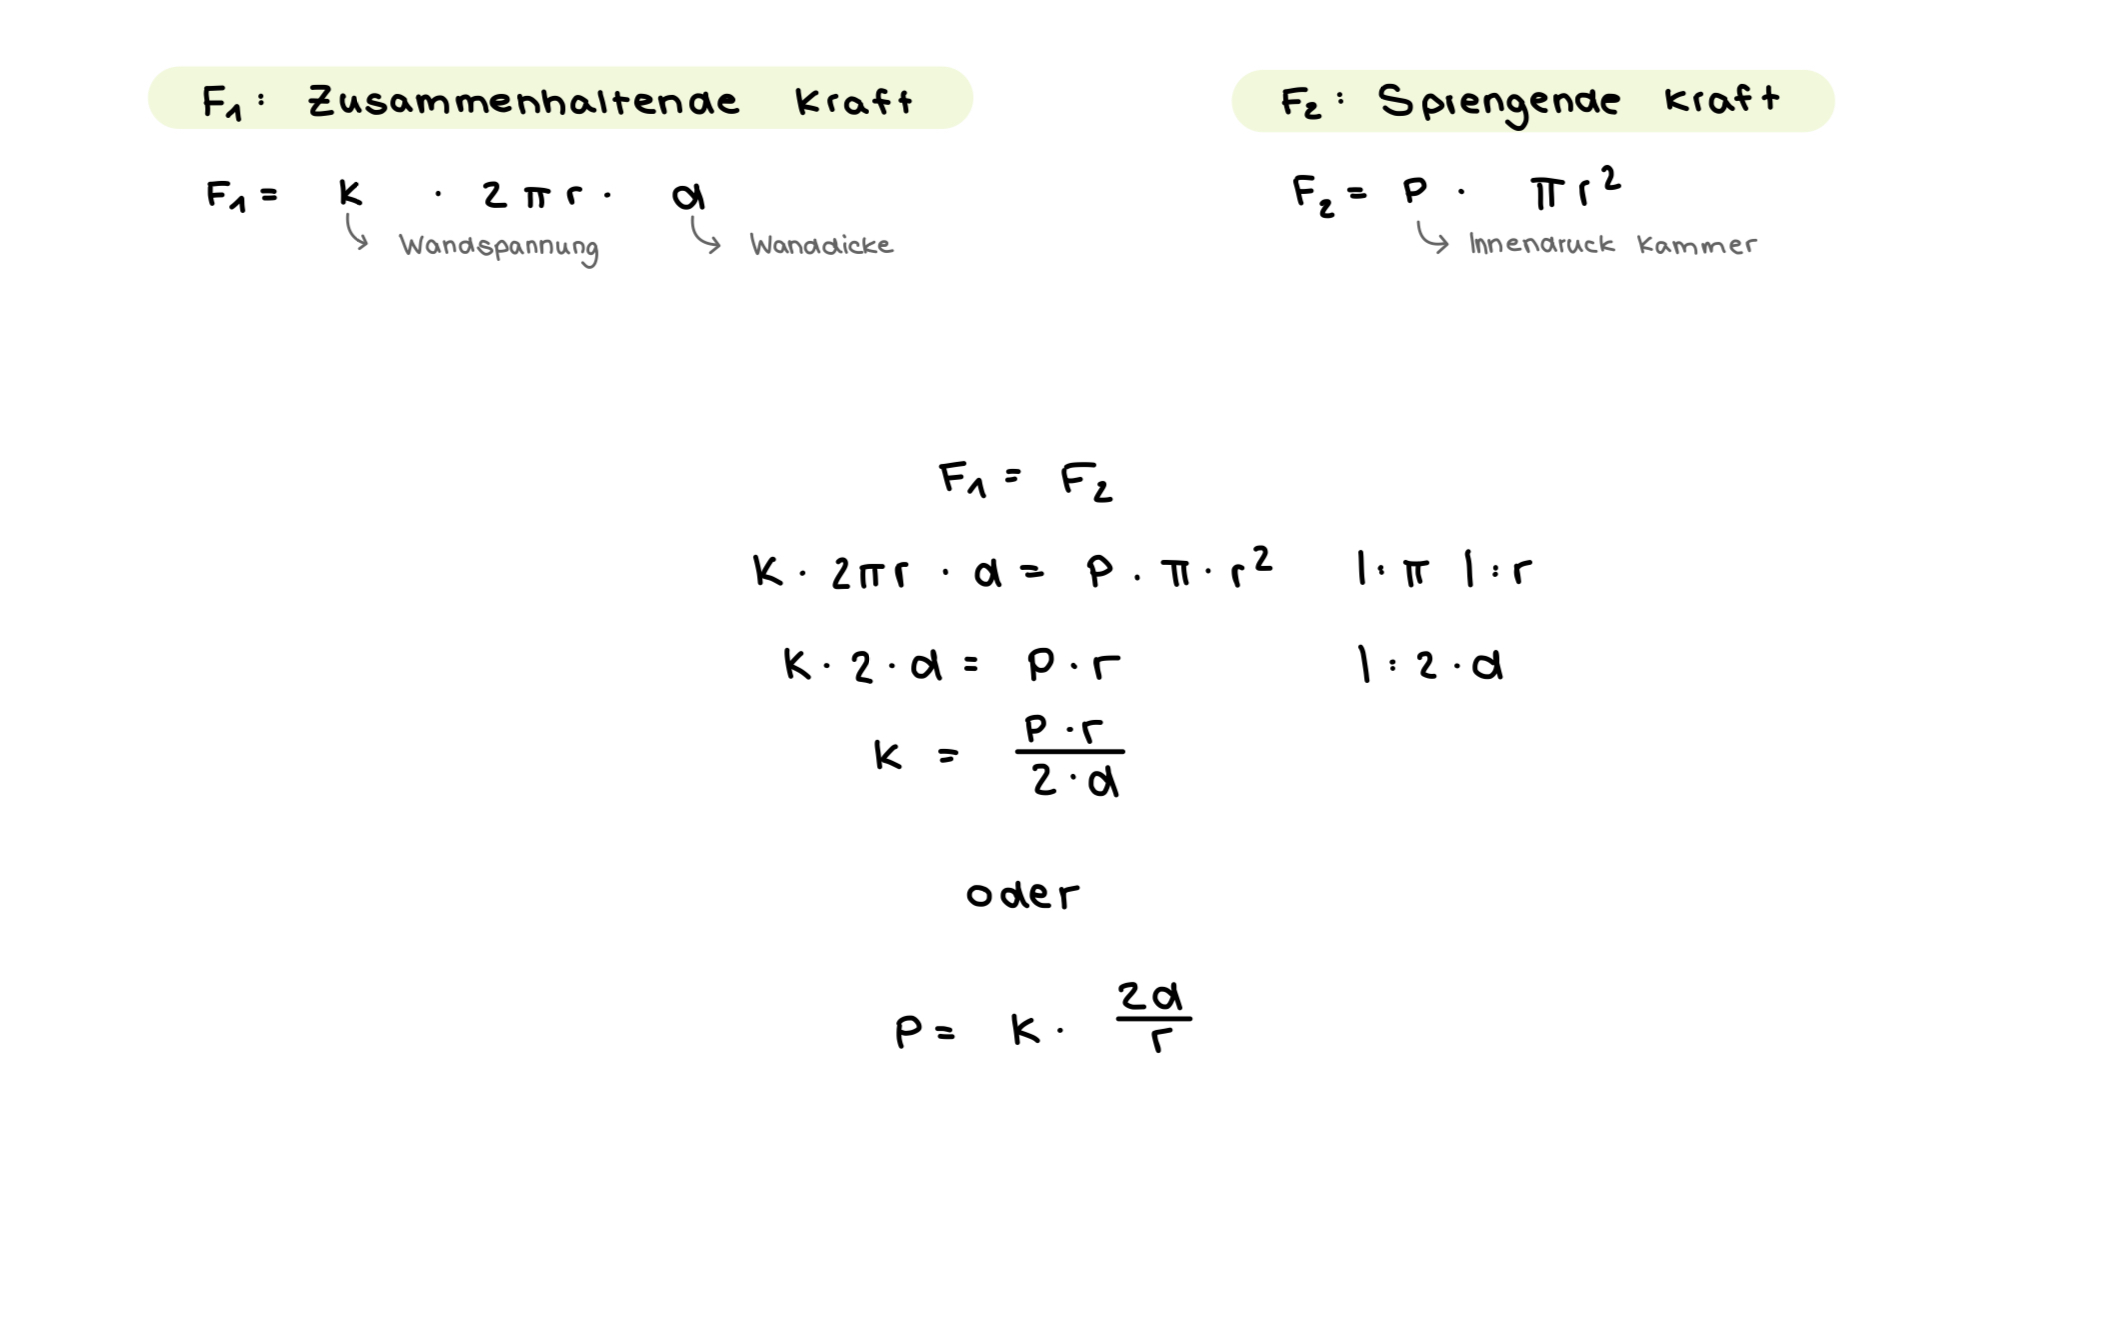 F₁: Zusammenhaltende Kraft
F₁ = K · 2πr · d
Wandspannung
Wanddicke
F₂: Sprengende Kraft
F₂ = P · πr²
Innendruck Kammer
F₁ = F₂
K · 2πr · d = P · π · r² |:π |:r
K · 2 · d = P · r |: 2 · d
K = P · r / 2 · d
oder
P = K · 2d / r